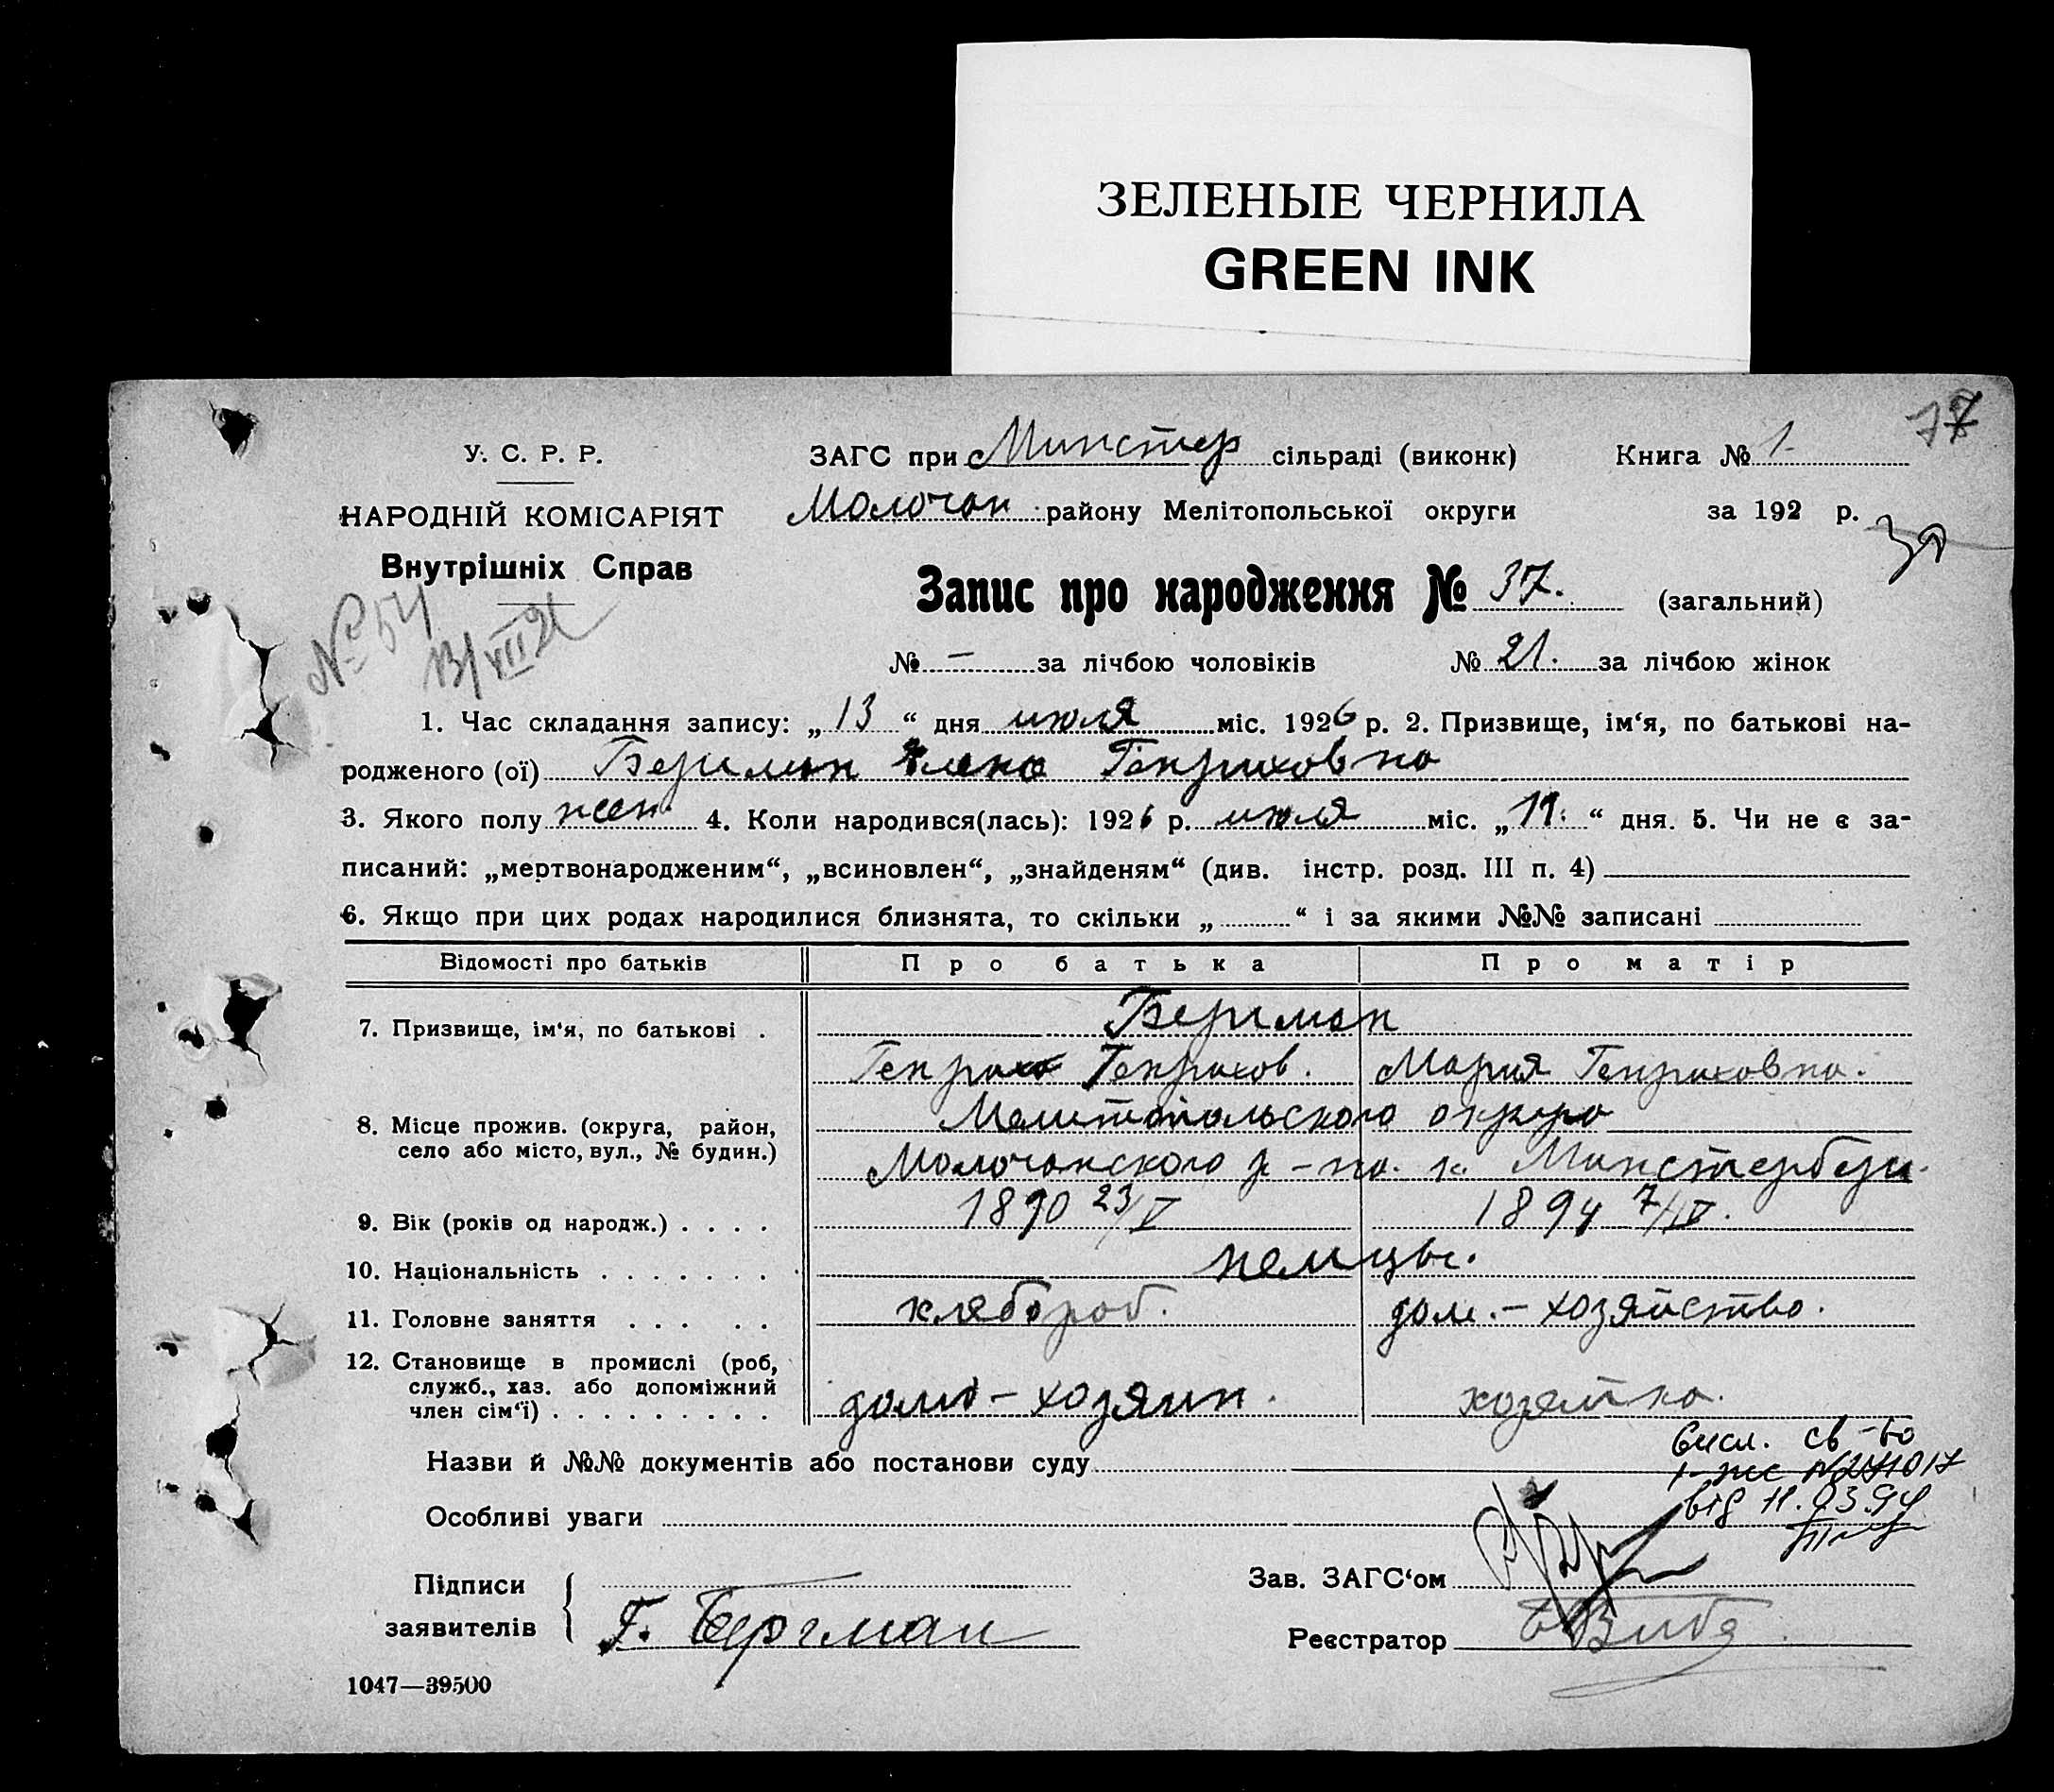 ЗЕЛЕНЫЕ ЧЕРНИЛА
GREEN INK
17
У. С. Р. Р.
ЗАГС при Минстер сільраді (виконк) Книга № 1.
НАРОДНІЙ КОМІСАРІЯТ
Молочан району Мелітопольської округи за 192 р.
Внутрішніх Справ
Запис про народження № 37. (загальний)
№ 54
13/VII 26
№ — за лічбою чоловіків № 21. за лічбою жінок
1. Час складання запису: „13“ дня июля міс. 1926 р. 2. Призвище, ім‘я, по батькові на-
родженого (ої) Бергман Елена Генриховна
3. Якого полу жен. 4. Коли народився(лась): 1926 р. июля міс. „11.“ дня. 5. Чи не є за-
писаний: „мертвонародженим“, „всиновлен“, „знайденям“ (див. інстр. розд. III п. 4)
6. Якщо при цих родах народилися близнята, то скільки „ “ і за якими №№ записані
Відомості про батьків Про батька Про матір
7. Призвище, ім‘я, по батькові . Бергман
Генрих Генрихов. Мария Генриховна.
8. Місце прожив. (округа, район, Мелитопольского округа
село або місто, вул., № будин.) Молочанского р-на. к. Минстерберг.
9. Вік (років од народж.) . . . . 1890 23/V 1894 7/IV.
10. Національність . . . . . . . немцы.
11. Головне заняття . . . . . хлебороб. дом.-хозяйство.
12. Становище в промислі (роб,
служб., хаз. або допоміжний
член сім‘ї) . . . . . . . . . домо-хозяин. хозяйка.
Назви й №№ документів або постанови суду
висл. св-во
1-ЖС №271017
від 11.03.94
Особливі уваги
Підписи
заявителів
Г. Бергман
Зав. ЗАГС‘ом
Реєстратор
1047—39500